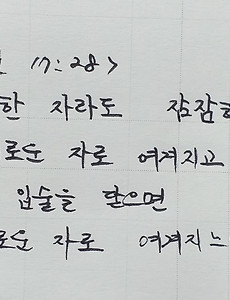 17:28>
한 자라도 잠잠하
로운 자로 여겨지고
입술을 닫으면
로운 자로 여겨지느